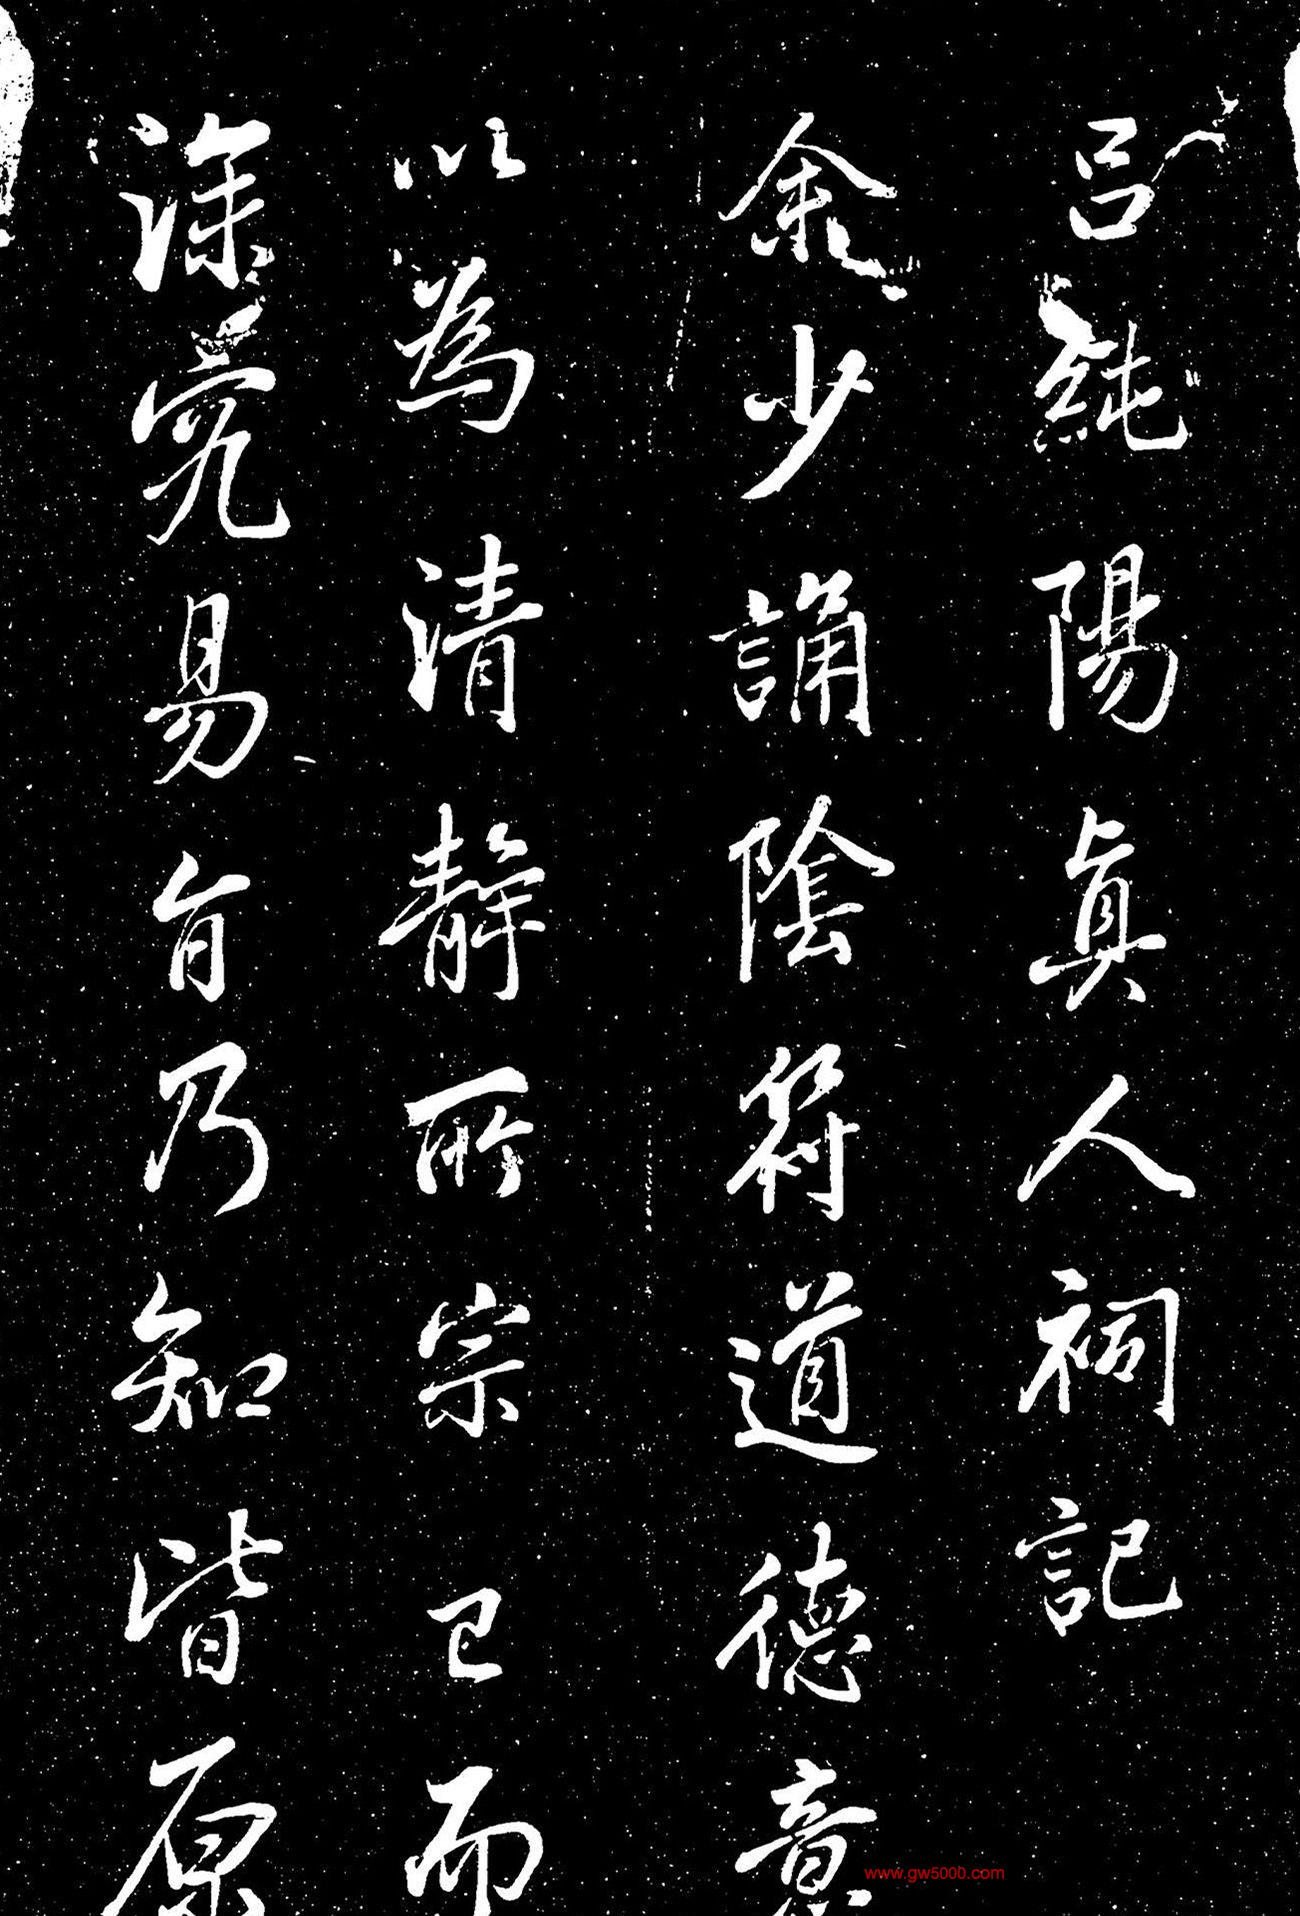 呂純陽真人祠記
余少誦陰符道德意
以為清靜所宗已而
深究易旨乃知皆原
www.gw5000.com